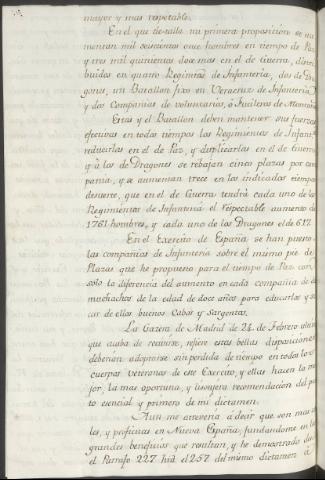 mayor y mas respetable.
En el que detalla mi primera proposicion se au
mentan mil ochocientos once hombres en tiempo de Paz
y tres mil quinientos doce mas en el de Guerra, distri
buidos en quatro Regimientos de Infanteria, dos de Dra
gones, un Batallon fixo en Veracruz de Infanteria
y dos Compañias de voluntarios, ó Fusileros de Montaña
Estas y el Batallon deben mantener sus fuerzas
efectivas en todos tiempos los Regimientos de Infant
reducirlas en el de Paz, y duplicarlas en el de Guerra
y à los de Dragones se rebajan cinco plazas por com
pania, y se aumentan trece en los indicados tiempos
de suerte, que en el de Guerra tendrá cada uno de los
Regimientos de Infanteria el respectable aumento de
1761 hombres, y cada uno de los Dragones el de 617.
En el Exercito de España se han puesto
las compañias de Infanteria sobre el mismo pie de
Plazas que he propuesto para el tiempo de Paz con
solo la diferencia del aumento en cada compañia de
muchachos de la edad de doce años para educarlos y sa
car de ellos buenos Cabos y Sargentos.
La Gazeta de Madrid de 24 de Febrero ultimo
que acaba de recivirse, refiere estas bellas disposiciones
deberian adoptarse sin perdida de tiempo en todos los
cuerpos veteranos de este Exercito, y ellas hacen la me
jor, la mas oportuna, y lisongera recomendacion del pun
to esencial y primero de mi dictamen.
Aun me atreveria à decir que son mas
les, y proficuas en Nueva España, fundandome en los
grandes beneficios que resultan, y he demostrado desde
el Parrafo 227 hta. el 257 del mismo dictamen à